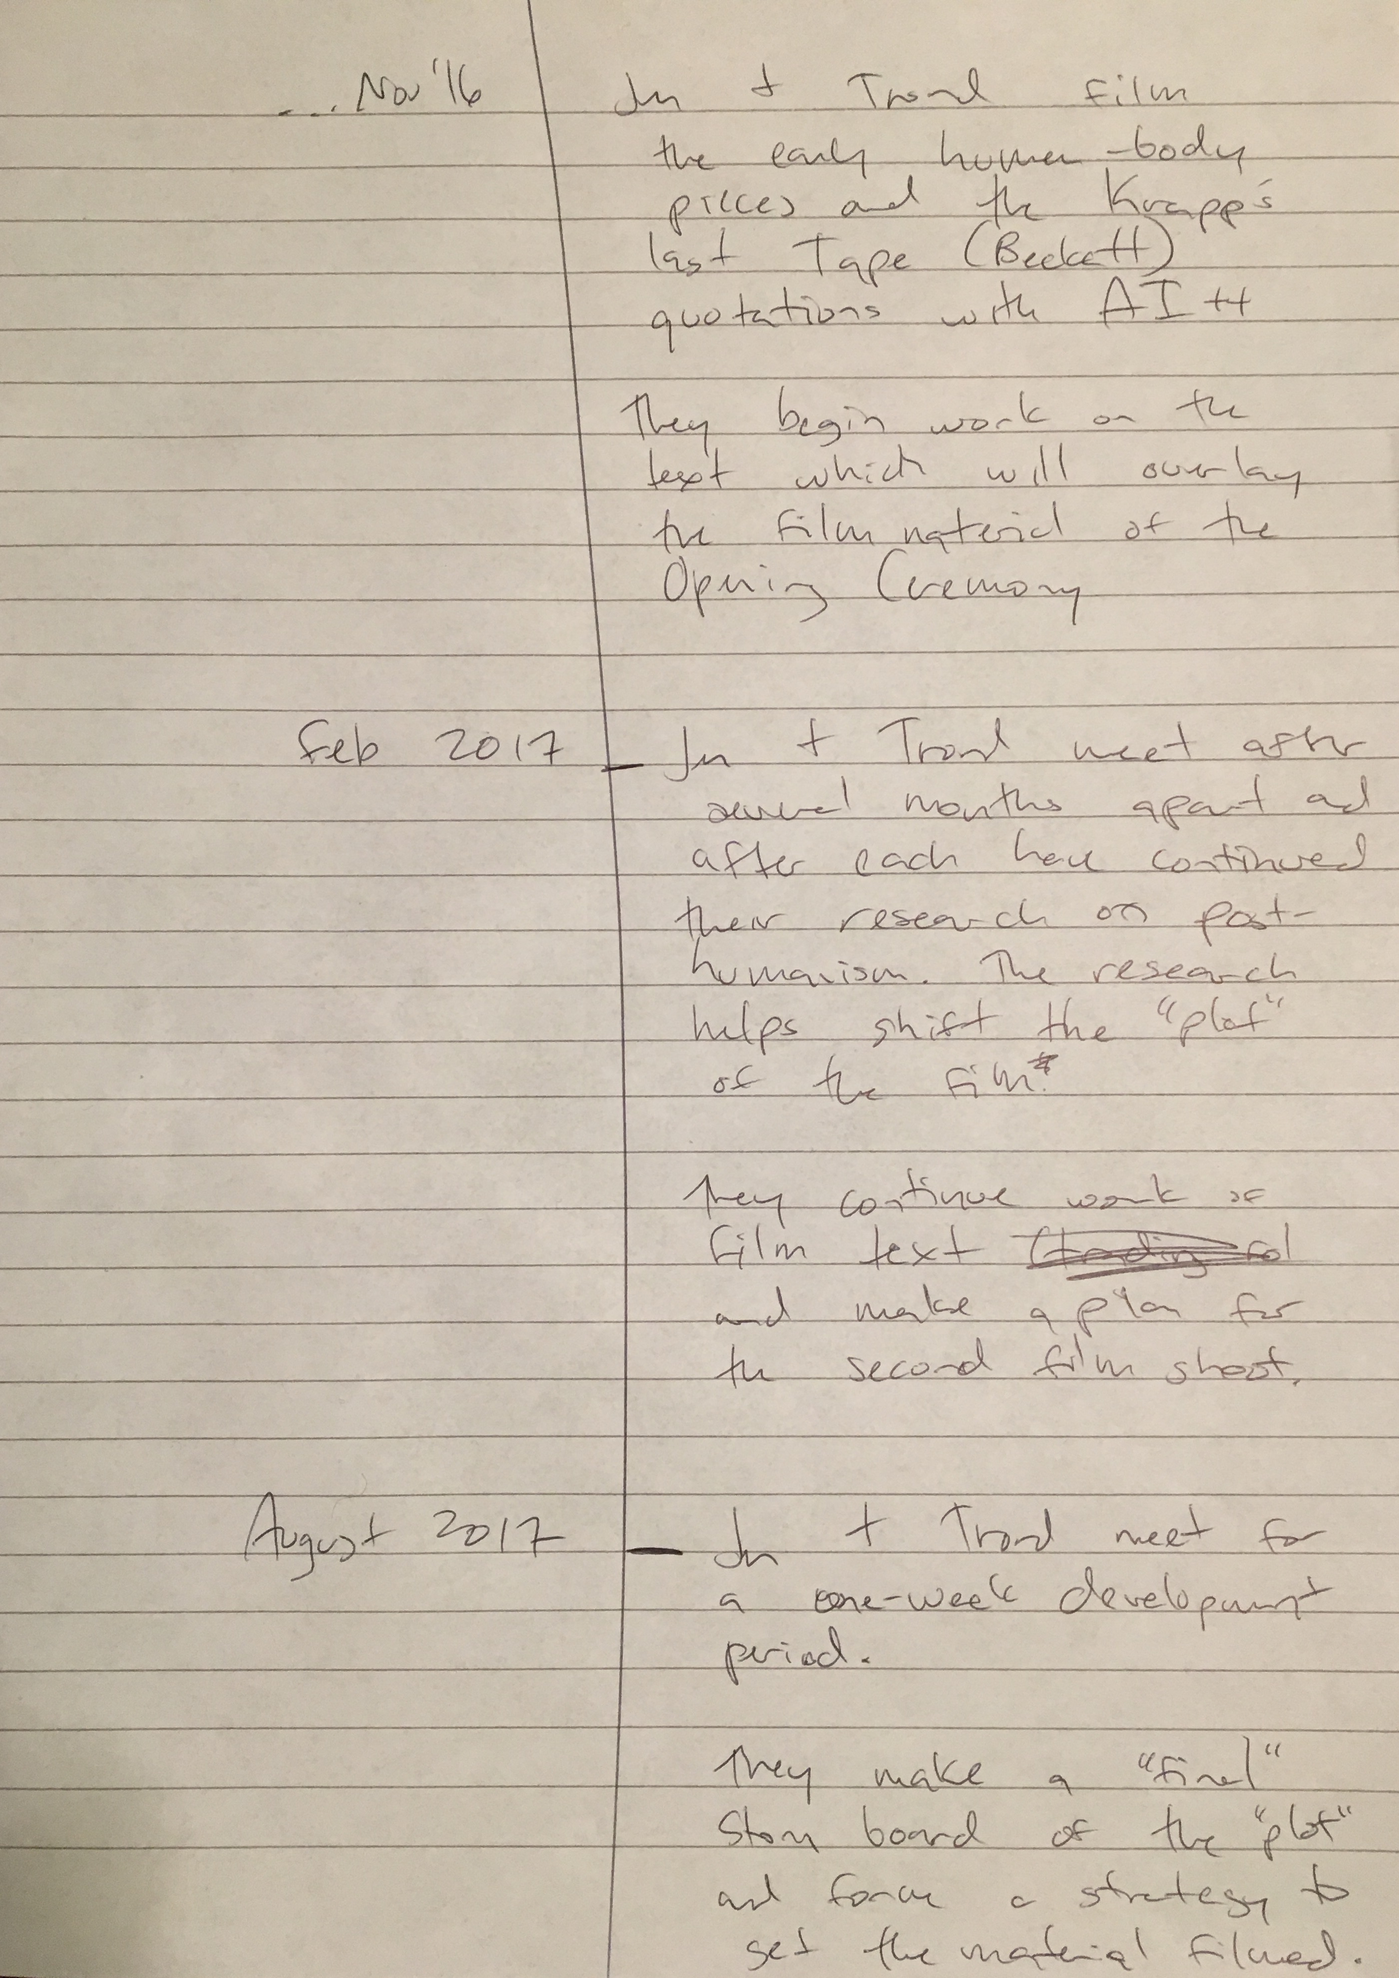 ... Nov '16
Jn + Trond film
the early human-body
pieces and the Krapp's
last Tape (Beckett)
quotations with AI ++
They begin work on the
text which will overlay
the film material of the
Opening Ceremony
Feb 2017 - Jn + Trond meet after
several months apart and
after each have continued
their research on post-
humanism. The research
helps shift the "plot"
of the film.*
They continue work of
film text
and make a plan for
the second film shoot.
August 2017 - Jn + Trond meet for
a one-week development
period.
They make a "final"
story board of the "plot"
and a strategy to
get the material filmed.